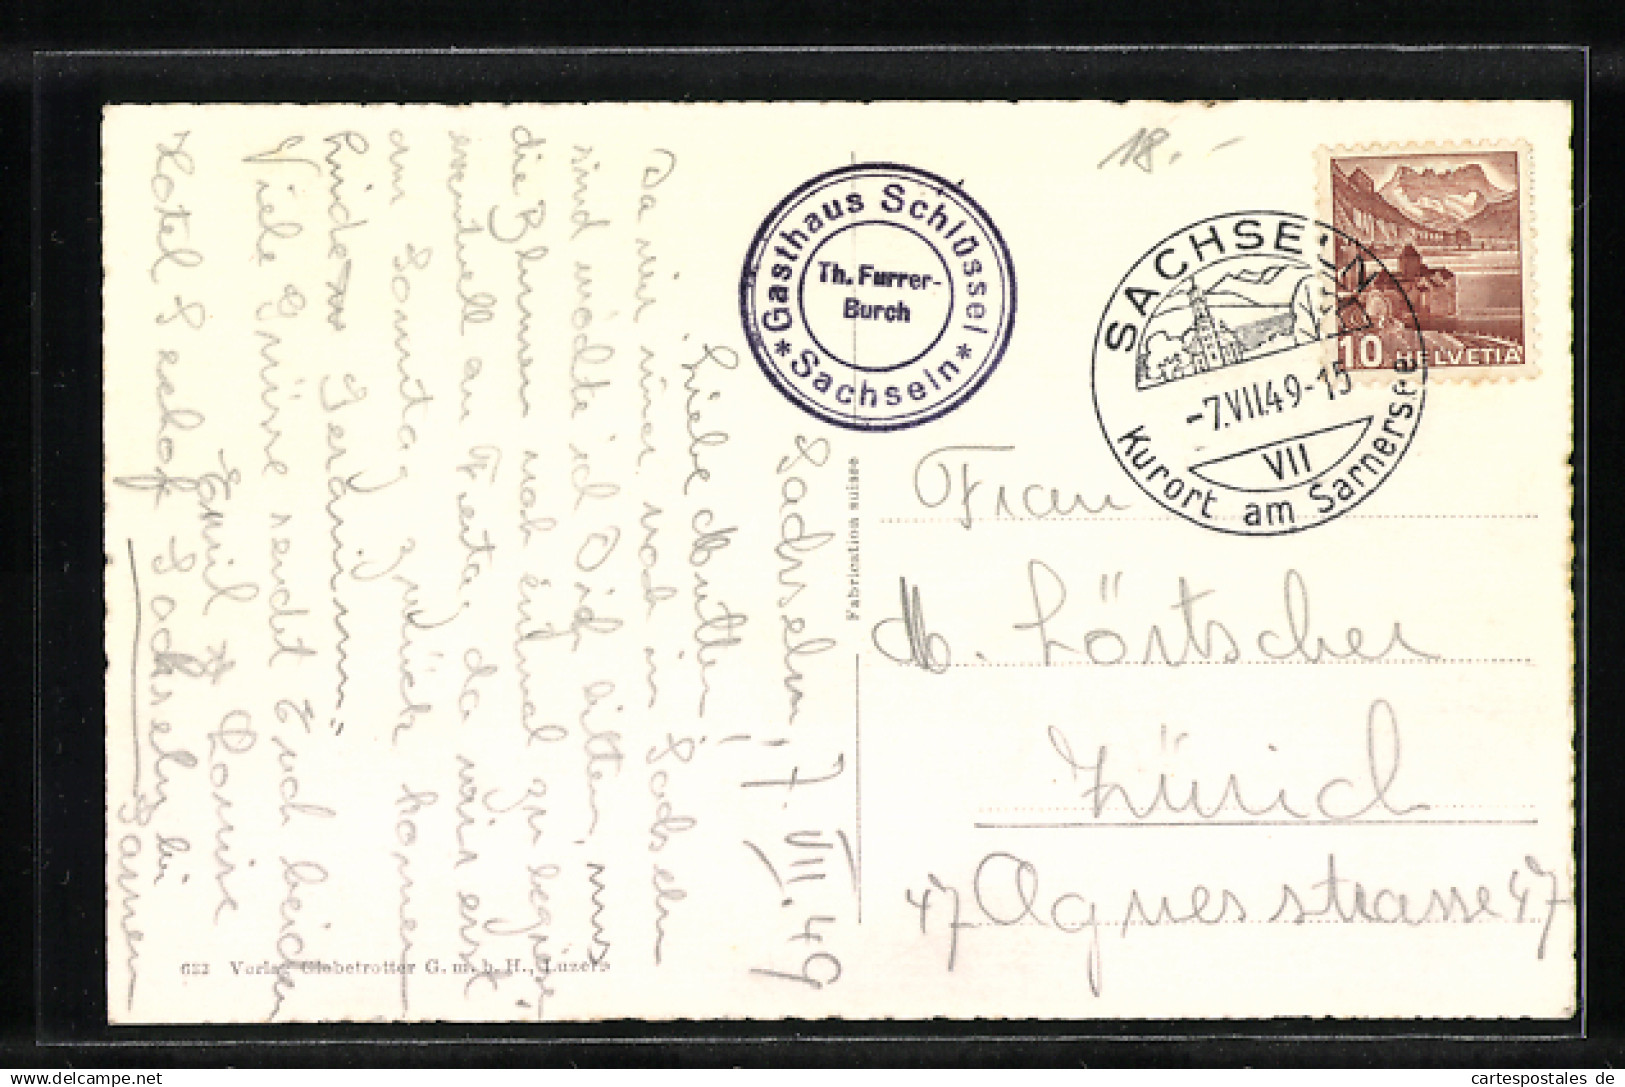 18.-
Gasthaus Schlössel
Th. Furrer-
Burch
* Sachseln *
SACHSELN
-7.VII.49-15
VII
Kurort am Sarnersee
10 HELVETIA
Sachseln, 7. VII. 49
Liebe Mutter!
Da wir immer noch in Sachseln
sind möchte ich Dich bitten, mus
die Blumen noch einmal zu begies-
eventuell am Freitag da wir erst
am Sonntag zurück komen
Geranium."
Viele Grüsse sendt Euch beiden
Emil & Louise
Hotel Seehof Sachseln bei
Sarnen
Fabrication suisse
Frau
M. Lörtscher
Zürich
47 Agnesstrasse 47
623 Verlag Globetrotter G. m. b. H., Luzern
cartespostales.de